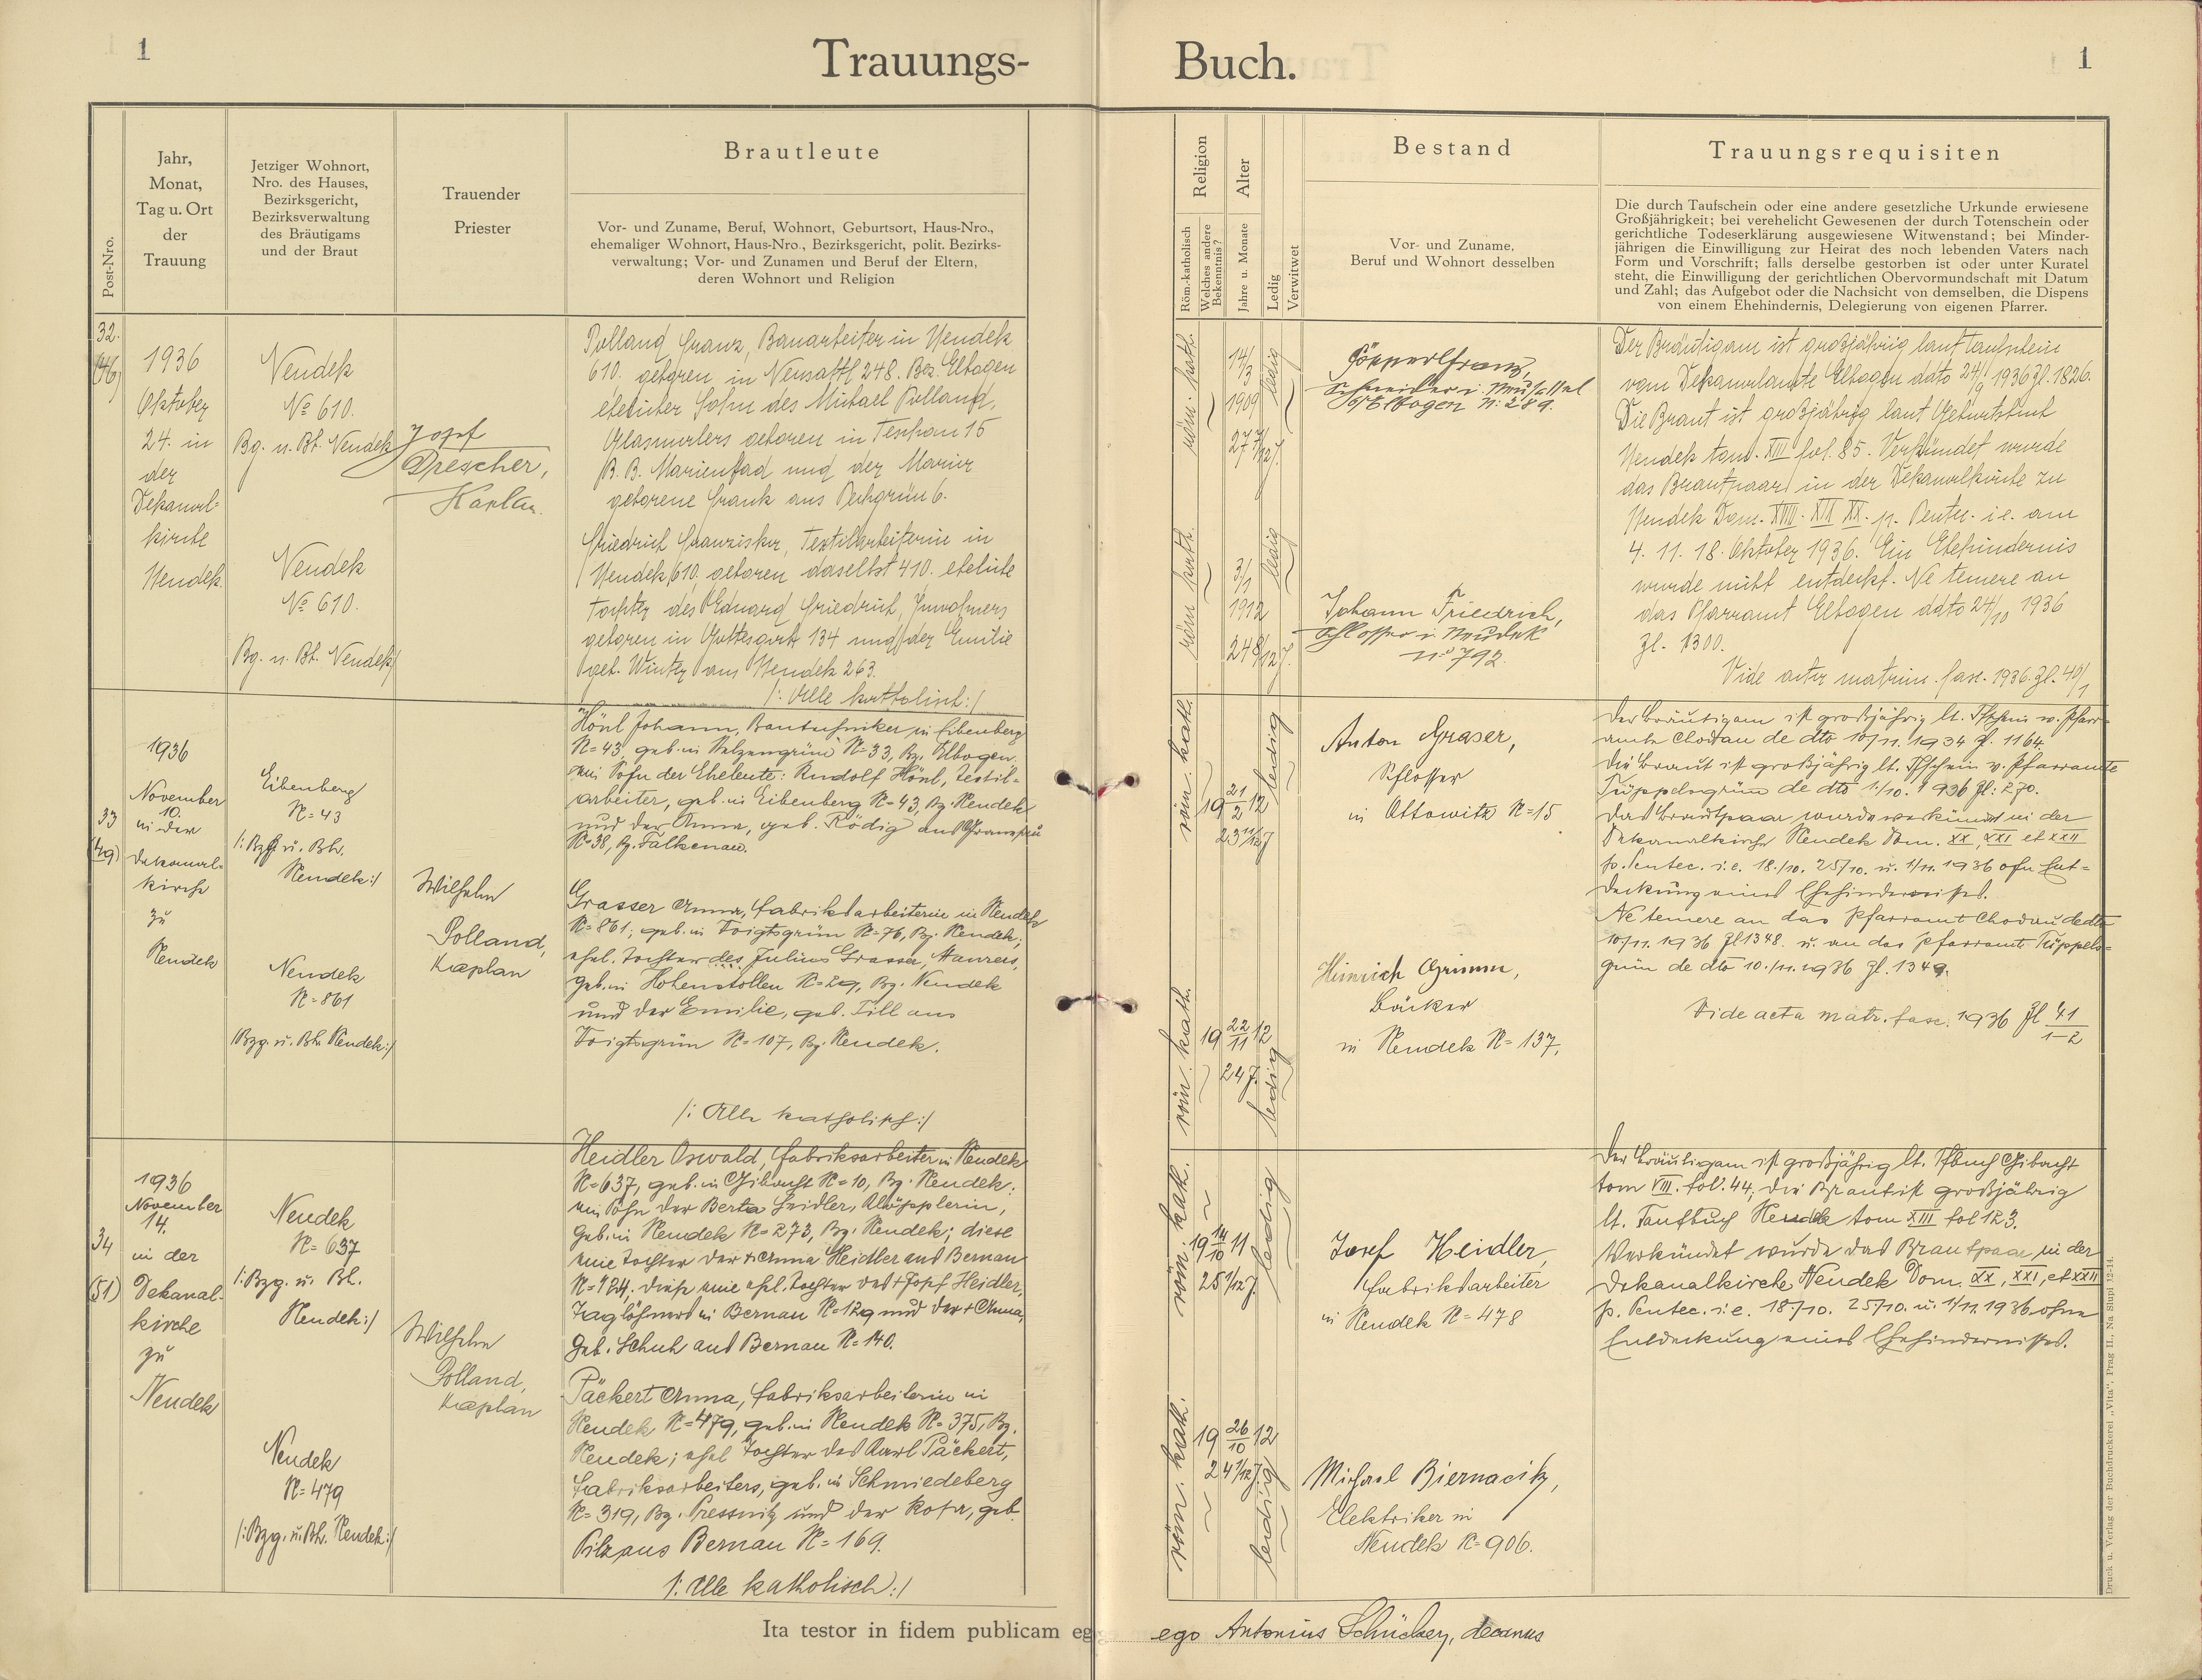 1
Trauungs-
Buch.
1
Post-Nro.
Jahr,
Monat,
Tag u. Ort
der
Trauung
Jetziger Wohnort,
Nro. des Hauses,
Bezirksgericht,
Bezirksverwaltung
des Bräutigams
und der Braut
Trauender
Priester
Brautleute
Vor- und Zuname, Beruf, Wohnort, Geburtsort, Haus-Nro.,
ehemaliger Wohnort, Haus-Nro., Bezirksgericht, polit. Bezirks-
verwaltung; Vor- und Zunamen und Beruf der Eltern,
deren Wohnort und Religion
Religion
Röm.-katholisch
Welches andere
Bekenntnis?
Alter
Jahre u. Monate
Ledig
Verwitwet
Bestand
Vor- und Zuname,
Beruf und Wohnort desselben
Trauungsrequisiten
Die durch Taufschein oder eine andere gesetzliche Urkunde erwiesene
Großjährigkeit; bei verehelicht Gewesenen der durch Totenschein oder
gerichtliche Todeserklärung ausgewiesene Witwenstand; bei Minder-
jährigen die Einwilligung zur Heirat des noch lebenden Vaters nach
Form und Vorschrift; falls derselbe gestorben ist oder unter Kuratel
steht, die Einwilligung der gerichtlichen Obervormundschaft mit Datum
und Zahl; das Aufgebot oder die Nachsicht von demselben, die Dispens
von einem Ehehindernis, Delegierung von eigenen Pfarrer.
32.
(46)
1936
Oktober
24. in
der
Dekanal-
kirche
Neudek.
Neudek
No 610.
Bg. u. Bt. Neudek
Neudek
No 610.
Bg. u. Bt. Neudek
Josef
Drescher,
Kaplan.
Polland Franz, Bauarbeiter in Neudek
610. geboren in Neusattl 248. Bez. Elbogen
ehelicher Sohn des Michael Polland,
Glasmalers geboren in Teschau 15
B. B. Marienbad und der Marie
geborene Frank aus Pechgrün 6.
Friedrich Franziska, Textilarbeiterin in
Neudek 610. geboren daselbst 410. eheliche
Tochter des Eduard Friedrich, Inwohners
geboren in Gottesgab 134 und der Emilie
geb. Winter aus Neudek 263.
/: Alle katholisch :/
röm. kath.
14/3
1909
27 7/12 J.
ledig
röm. kath.
3/1
1912
24 8/12 J.
ledig
Franz,
Schneider i. Neusattel
b/Elbogen N: 289.
Johann Friedrich,
Schlosser i. Neudek
No 792.
Der Bräutigam ist großjährig laut Taufschein
vom Dekanalamte Elbogen ddto 24/9 1936 Zl. 1826.
Die Braut ist großjährig laut Geburtsbuch
Neudek tom. XIII fol. 85. Verkündet wurde
das Brautpaar in der Dekanalkirche zu
Neudek Dom. XVIII. XIX XX. p. Pentec. i.e. am
4. 11. 18. Oktober 1936. Ein Ehehindernis
wurde nicht entdeckt. Ne temere an
das Pfarramt Elbogen ddto 24/10 1936
Zl. 1300.
Vide acta matrim. fasc. 1936. Zl. 40/1
33
(49)
1936
November
10.
in der
Dekanal-
kirche
zu
Neudek
Eibenberg
N= 43
/: Bzg. u. Bh.
Neudek :/
Neudek
N= 861
/Bzg. u. Bh. Neudek :/
Wilhelm
Polland,
Kaplan
Hönl Johann, Bautechniker in Eibenberg
N= 43, geb. in Stelzengrün N= 33, Bg. Elbogen.
ein Sohn der Eheleute: Rudolf Hönl, Textil-
arbeiter, geb. in Eibenberg N= 43, Bg. Neudek
und der Anna, geb. Rödig aus
N= 38, Bg. Falkenau.
Grasser Anna, Fabriksarbeiterin in Neudek
N= 861; geb. in Voigtsgrün N= 76, Bg. Neudek;
ehel. Tochter des Julius Grasser, Maurers,
geb. in Hohenstollen N= 29, Bg. Neudek
und der Emilie, geb. Till aus
Voigtsgrün N= 107, Bg. Neudek.
/: Alle katholisch :/
röm. kath.
19 21/2 12
23 11/12 J
ledig
röm. kath.
19 22/11 12
24 J.
ledig
Anton Graser,
Schlosser
in Ottowitz N= 15
Heinrich Grimm,
Bäcker
in Neudek N= 137.
Der Bräutigam ist großjährig lt. Tfschein v. Pfarr-
amte Chodau de dto 10/11. 1934 Zl. 1164.
Die Braut ist großjährig lt. Tfschein v. Pfarramte
Trüppelsgrün de dto 1./10. 1936 Zl: 270.
Das Brautpaar wurde verkündet in der
Dekanalkirche Neudek Dom. XX, XXI et XXII
p. Pentec. i.e. 18./10. 25/10. u. 1/11. 1936 ohne Ent-
deckung eines Ehehindernisses.
Ne temere an das Pfarramt Chodau de dto
10/11. 1936 Zl 1348. u. an das Pfarramt Trüppels-
grün de dto 10./11. 1936 Zl. 1349.
Vide acta matr. fasc. 1936 Zl 41/1-2
34
(51)
1936
November
14.
in der
Dekanal-
kirche
zu
Neudek
Neudek
N= 637
/: Bzg. u. Bh.
Neudek :/
Neudek
N= 479
/: Bzg. u. Bh. Neudek :/
Wilhelm
Polland,
Kaplan
Heidler Oswald, Fabriksarbeiter in Neudek
N= 637, geb. in Gibacht N= 10, Bg. Neudek;
ein Sohn der Berta Heidler, Klöpplerin,
geb. in Neudek N= 273, Bg. Neudek; diese
eine Tochter der + Anna Heidler aus Bernau
N= 124, diese eine ehel. Tochter des + Josef Heidler,
Taglöhners in Bernau N= 129 und der + Anna,
geb. Schuh aus Bernau N= 140.
Päckert Anna, Fabriksarbeiterin in
Neudek N= 479, geb. in Neudek N= 375, Bg.
Neudek; ehel. Tochter des Karl Päckert,
Fabriksarbeiters, geb. in Schmiedeberg
N= 319, Bg. Pressnitz und der Rosa, geb.
Pilz aus Bernau N= 169.
/: Alle katholisch :/
röm. kath.
19 14/10 11
25 1/12 J.
ledig
röm. kath.
19 26/10 12
24 1/12 J.
ledig
Josef Heidler,
Fabriksarbeiter
in Neudek N= 478
Michael Biernacik,
Elektriker in
Neudek N= 906.
Der Bräutigam ist großjährig lt. Tfbuch Gibacht
tom VIII. fol. 44; die Braut ist großjährig
lt. Taufbuch Neudek tom XIII fol 123.
Verkündet wurde das Brautpaar in der
Dekanalkirche Neudek Dom. XX, XXI, et XXII
p. Pentec. i.e. 18/10. 25/10. u. 1/11. 1936 ohne
Entdeckung eines Ehehindernisses.
Ita testor in fidem publicam eg
ego Antonius Schücker, decanus
Druck u. Verlag der Buchdruckerei „Vita“, Prag II., Na Slupi 12-14.